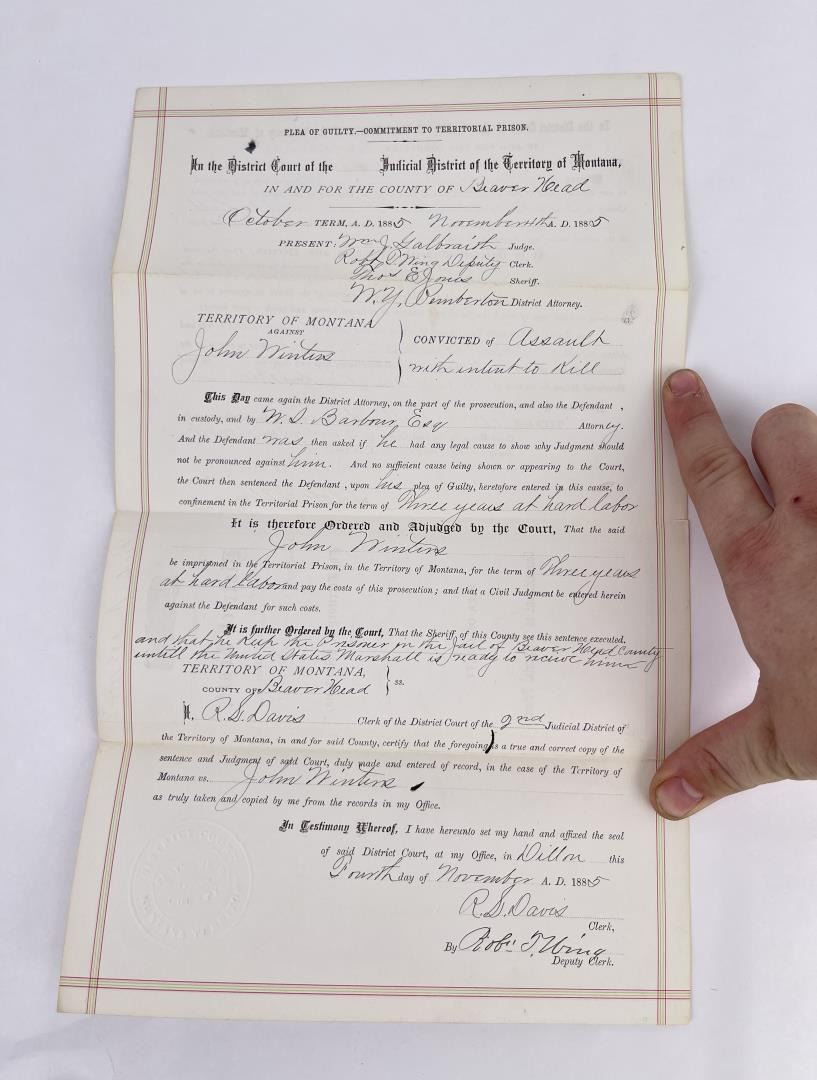 PLEA OF GUILTY.—COMMITMENT TO TERRITORIAL PRISON.
In the District Court of the Judicial District of the Territory of Montana,
IN AND FOR THE COUNTY OF Beaver Head
October TERM, A. D. 1885 November 4th A. D. 1885
PRESENT: Wm J. Galbraith Judge.
Robt T Wing Deputy Clerk.
Thos E Jones Sheriff.
W. Y. Pemberton District Attorney.
TERRITORY OF MONTANA
AGAINST
John Winters
CONVICTED of Assault
with intent to Kill
This Day came again the District Attorney, on the part of the prosecution, and also the Defendant ,
in custody, and by W. S. Barbour, Esq Attorney.
And the Defendant was then asked if he had any legal cause to show why Judgment should
not be pronounced against him. And no sufficient cause being shown or appearing to the Court,
the Court then sentenced the Defendant , upon his plea of Guilty, heretofore entered in this cause, to
confinement in the Territorial Prison for the term of Three years at hard labor
It is therefore Ordered and Adjudged by the Court, That the said
John Winters
be imprisoned in the Territorial Prison, in the Territory of Montana, for the term of Three years
at hard labor and pay the costs of this prosecution; and that a Civil Judgment be entered herein
against the Defendant for such costs.
It is further Ordered by the Court, That the Sheriff of this County see this sentence executed.
and that he Keep the Prisoner in the Jail of Beaver Head County
untill the United States Marshall is ready to recieve him
TERRITORY OF MONTANA,
COUNTY OF Beaver Head } ss.
I, R. S. Davis Clerk of the District Court of the 2nd Judicial District of
the Territory of Montana, in and for said County, certify that the foregoing is a true and correct copy of the
sentence and Judgment of said Court, duly made and entered of record, in the case of the Territory of
Montana vs. John Winters
as truly taken and copied by me from the records in my Office.
In Testimony Whereof, I have hereunto set my hand and affixed the seal
of said District Court, at my Office, in Dillon this
Fourth day of November A. D. 1885
R. S. Davis
Clerk,
By Robt T. Wing
Deputy Clerk.